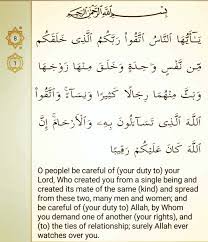 بِسْمِ اللَّهِ الرَّحْمَٰنِ الرَّحِيمِ
8
1
يَـٰٓأَيُّهَا ٱلنَّاسُ ٱتَّقُوا۟ رَبَّكُمُ ٱلَّذِى خَلَقَكُم
مِّن نَّفْسٍ وَٰحِدَةٍ وَخَلَقَ مِنْهَا زَوْجَهَا
وَبَثَّ مِنْهُمَا رِجَالًا كَثِيرًا وَنِسَآءً ۚ وَٱتَّقُوا۟
ٱللَّهَ ٱلَّذِى تَسَآءَلُونَ بِهِۦ وَٱلْأَرْحَامَ ۚ إِنَّ
ٱللَّهَ كَانَ عَلَيْكُمْ رَقِيبًا
O people! be careful of (your duty to) your
Lord, Who created you from a single being and
created its mate of the same (kind) and spread
from these two, many men and women; and
be careful of (your duty to) Allah, by Whom
you demand one of another (your rights), and
(to) the ties of relationship; surely Allah ever
watches over you.